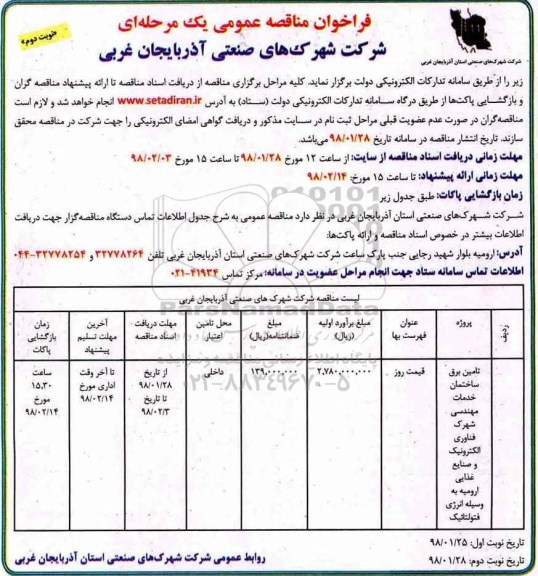 فراخوان مناقصه عمومی یک مرحله‌ای
شرکت شهرک‌های صنعتی آذربایجان غربی
«نوبت دوم»
شرکت شهرک‌های صنعتی استان آذربایجان غربی
زیر را از طریق سامانه تدارکات الکترونیکی دولت برگزار نماید. کلیه مراحل برگزاری مناقصه از دریافت اسناد مناقصه تا ارائه پیشنهاد مناقصه گران
و بازگشـایی پاکت‌ها از طریق درگاه سـامانه تدارکات الکترونیکی دولت (سـتاد) به آدرس www.setadiran.ir انجام خواهد شد و لازم است
مناقصه‌گران در صورت عدم عضویت قبلی مراحل ثبت نام در سـایت مذکور و دریافت گواهی امضای الکترونیکی را جهت شرکت در مناقصه محقق
سازند. تاریخ انتشار مناقصه در سامانه تاریخ ۹۸/۰۱/۲۸ می‌باشد.
مهلت زمانی دریافت اسناد مناقصه از سایت: از ساعت ۱۲ مورخ ۹۸/۰۱/۲۸ تا ساعت ۱۵ مورخ ۹۸/۰۲/۰۳
مهلت زمانی ارائه پیشنهاد: تا ساعت ۱۵ مورخ: ۹۸/۰۲/۱۴
زمان بازگشایی پاکات: طبق جدول زیر
شـرکت شـهرک‌های صنعتی استان آذربایجان غربی در نظر دارد مناقصه عمومی به شرح جدول اطلاعات تماس دستگاه مناقصه‌گزار جهت دریافت
اطلاعات بیشتر در خصوص اسناد مناقصه و ارائه پاکت‌ها:
آدرس: ارومیه بلوار شهید رجایی جنب پارک ساعت شرکت شهرک‌های صنعتی استان آذربایجان غربی تلفن ۳۲۷۷۸۲۶۴ و ۳۲۷۷۸۲۵۴-۰۴۴
اطلاعات تماس سامانه ستاد جهت انجام مراحل عضویت در سامانه: مرکز تماس ۴۱۹۳۴-۰۲۱
لیست مناقصه شرکت شهرک های صنعتی آذربایجان غربی
ردیف
پروژه
عنوان فهرست بها
مبلغ برآورد اولیه (ریال)
مبلغ ضمانتنامه(ریال)
محل تامین اعتبار
مهلت دریافت اسناد مناقصه
آخرین مهلت تسلیم پیشنهاد
زمان بازگشایی پاکات
تامین برق
ساختمان
خدمات
مهندسی
شهرک
فناوری
الکترونیک
و صنایع
غذایی
ارومیه به
وسیله انرژی
فتولتائیک
قیمت روز
۲,۷۸۰,۰۰۰,۰۰۰
۱۳۹,۰۰۰,۰۰۰
داخلی
از تاریخ
۹۸/۰۱/۲۸
تا تاریخ
۹۸/۰۲/۳
تا آخر وقت
اداری مورخ
۹۸/۰۲/۱۴
ساعت
۱۵,۳۰
مورخ
۹۸/۰۲/۱۴
تاریخ نوبت اول: ۹۸/۰۱/۲۵
تاریخ نوبت دوم: ۹۸/۰۱/۲۸
روابط عمومی شرکت شهرک‌های صنعتی استان آذربایجان غربی
ParsNamadData
۰۲۱-۸۸۳۴۹۶۷۰-۵